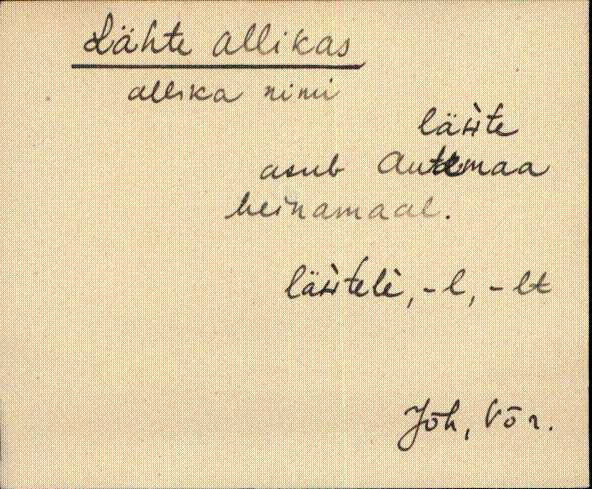 Lähte allikas
allika nimi
läste
asub Autemaa
heinamaal.
lästele, -l, -lt
Jõh, Võr.